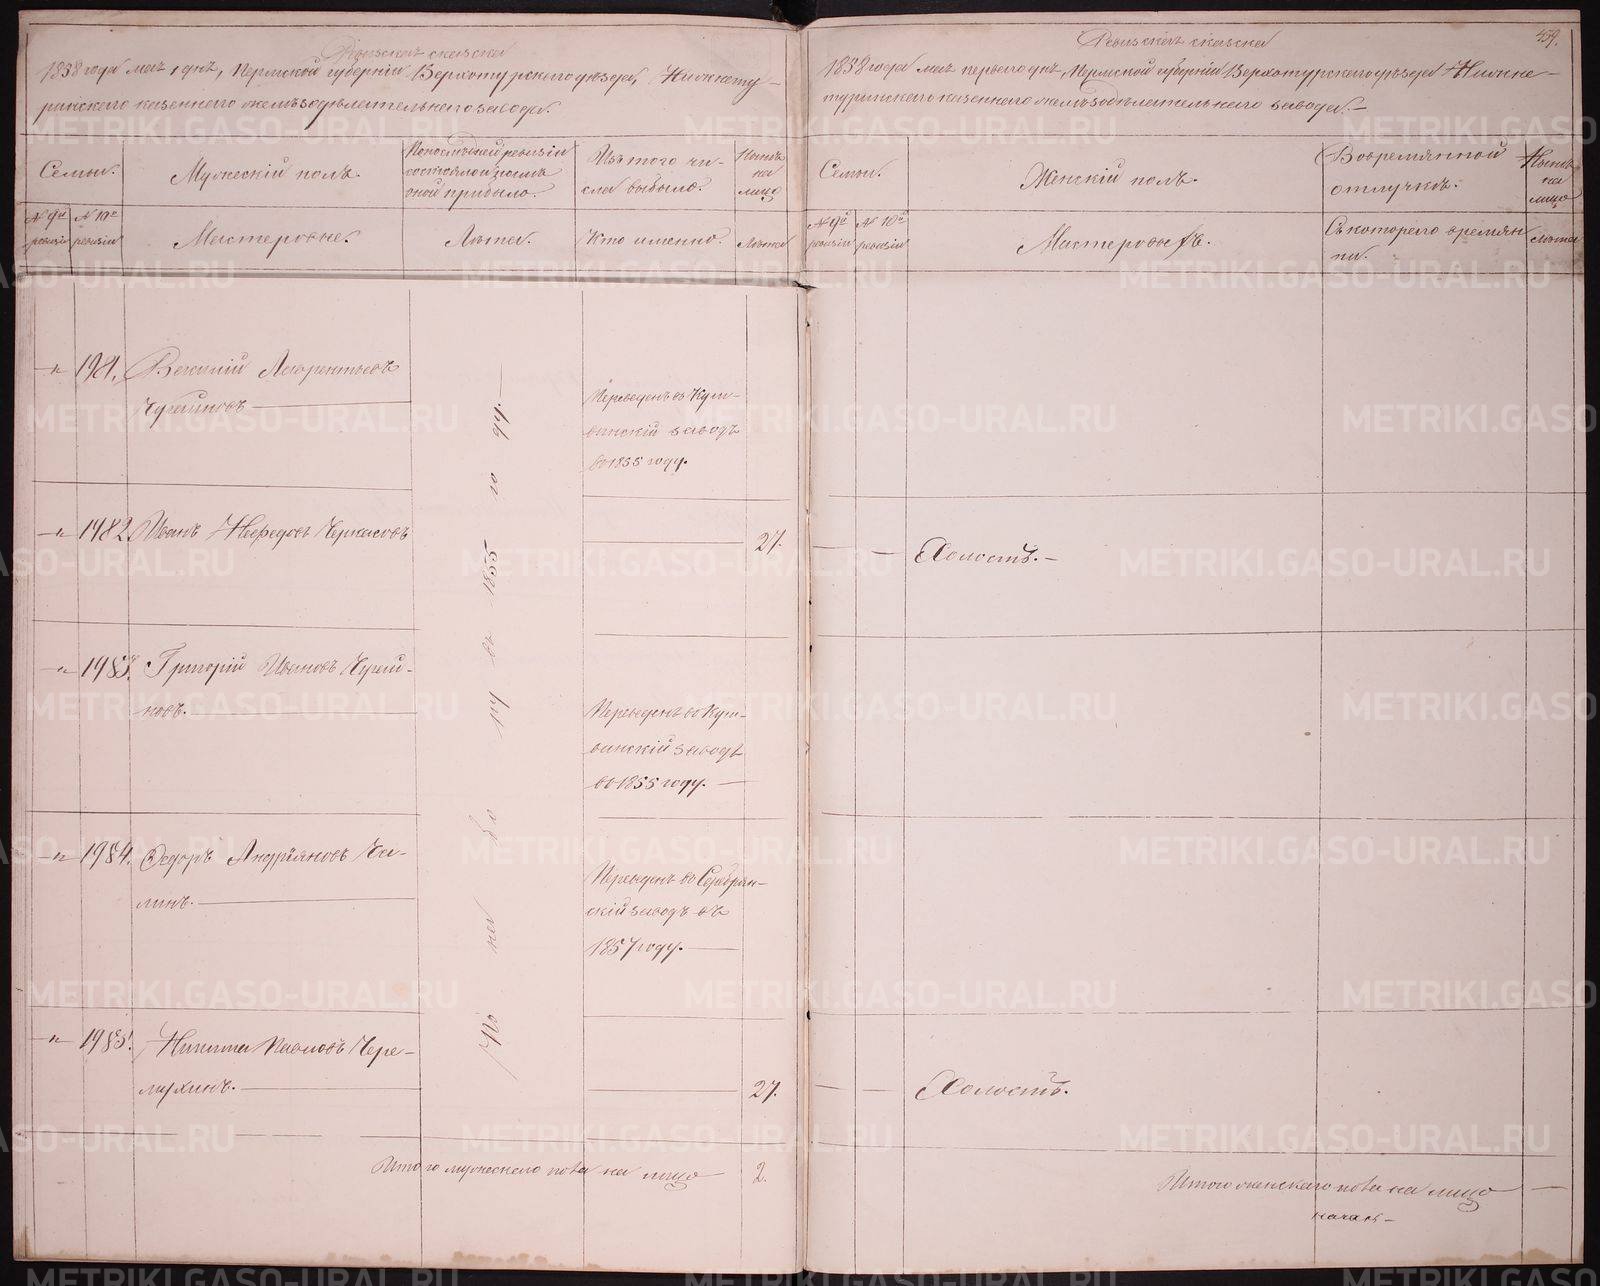 Ревизская сказка
1858 года мая 1 дня, Пермской губерніи Верхотурскаго уѣзда, Нижнету-
ринскаго казеннаго желѣзодѣлательнаго завода.
Семьи.
Мужескій полъ.
По послѣдней ревизіи
состояло и послѣ
оной прибыло.
Изъ того чи-
сла выбыло.
Нынѣ
на
лицо
№ 9й
ревизіи
№ 10й
ревизіи
Мастеровые.
Лѣта.
Кто именно.
Лѣта
1981.
Василій Лаврентьевъ
Чугаиновъ
Переведенъ въ Куш-
винскій заводъ
въ 1855 году.
1982
Иванъ Нефедовъ Черкасовъ
27.
1983.
Григорій Ивановъ Чугаи-
новъ.
Переведенъ въ Куш-
винскій заводъ
въ 1855 году.
1984.
Федоръ Андріяновъ Ча-
линъ.
Переведенъ въ Серебрян-
скій заводъ въ
1857 году.
1985.
Никита Павловъ Чере-
мухинъ.
27.
въ 1855 го ду.
Итого мужескаго пола на лицо
2.
459.
Ревизская сказка
1858 года мая перваго дня, Пермской губерніи Верхотурскаго уѣзда Нижне-
туринскаго казеннаго желѣзодѣлательнаго завода.
Семьи.
Женскій полъ.
Во временной
отлучкѣ.
Нынѣ
на
лицо
№ 9й
ревизіи
№ 10й
ревизіи
Мастеровыхъ.
Съ котораго времян
ни.
Лѣта
Холостъ.
Холостъ.
Итого женскаго пола на лицо
METRIKI.GASO-URAL.RU